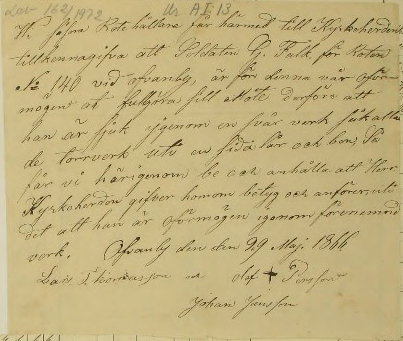 Lev 162/1972 Ur A I 13
Wi såsom Rotehållare får härmed till Kyrkoherden
tillkännagifva att Soldaten G. Falk för Roten
No 140 vid Ofvanby, är för denna vår oför-
mögen at fullgöra sitt Möte derföre att
han är sjuk igenom en svår verk såkallade
de torrverk uti en sida lår och ben, Så
får vi härigenom be och anhålla att Herr
Kyrkoherden gifver honom betyg och anförer uti
det att han är oförmögen igenom förenämnd
verk. Ofvanby den den 29 Maj 1866
Lars Thomasson Olof + Persson
Johan Jansson